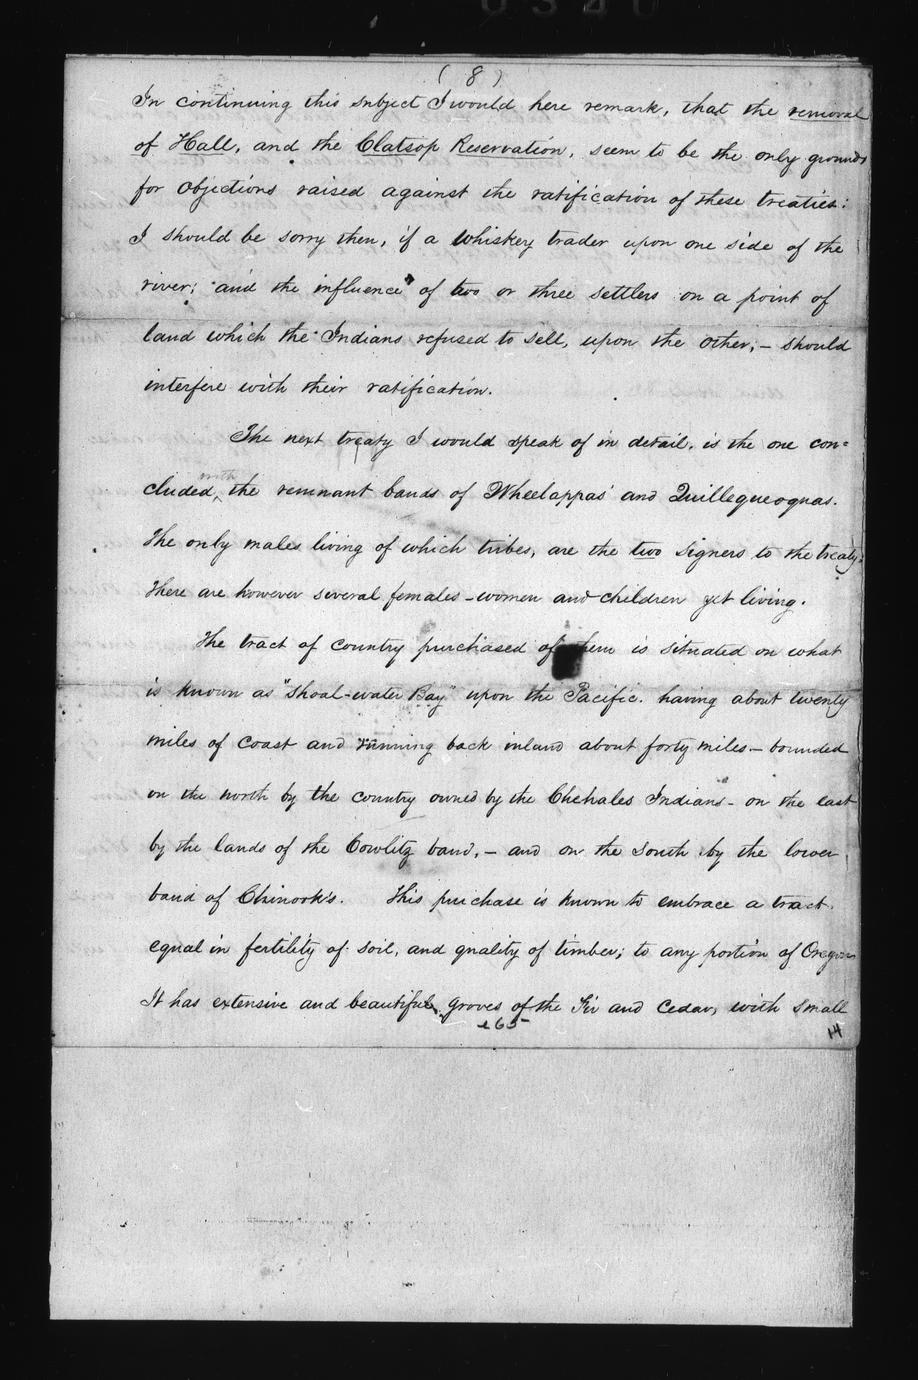 ( 8 )
In continuing this subject I would here remark, that the removal
of Hall, and the Clatsop Reservation, seem to be the only grounds
for objections raised against the ratification of these treaties:
I should be sorry then, if a whiskey trader upon one side of the
river; and the influence of two or three settlers on a point of
land which the Indians refused to sell, upon the other;— should
interfere with their ratification.
The next treaty I would speak of in detail, is the one con=
cluded with the remnant bands of Wheelappas and Quillequeoquas.
The only males living of which tribes, are the two signers to the treaty:
There are however several females—women and children yet living.
The tract of country purchased of them is situated on what
is known as "Shoal-water Bay" upon the Pacific. having about twenty
miles of coast and running back inland about forty miles— bounded
on the north by the country owned by the Chehales Indians— on the east
by the lands of the Cowlitz band,— and on the South by the lower
band of Chinook's. This purchase is known to embrace a tract
equal in fertility of soil, and quality of timber; to any portion of Oregon
It has extensive and beautiful groves of the Fir and Cedar, with small
165
14